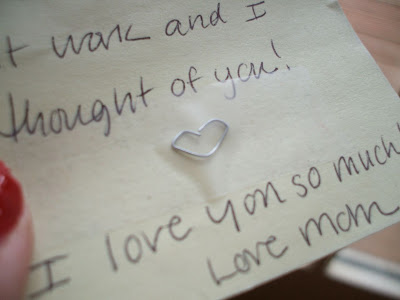 at work and I
thought of you!
I love you so much!
Love mom